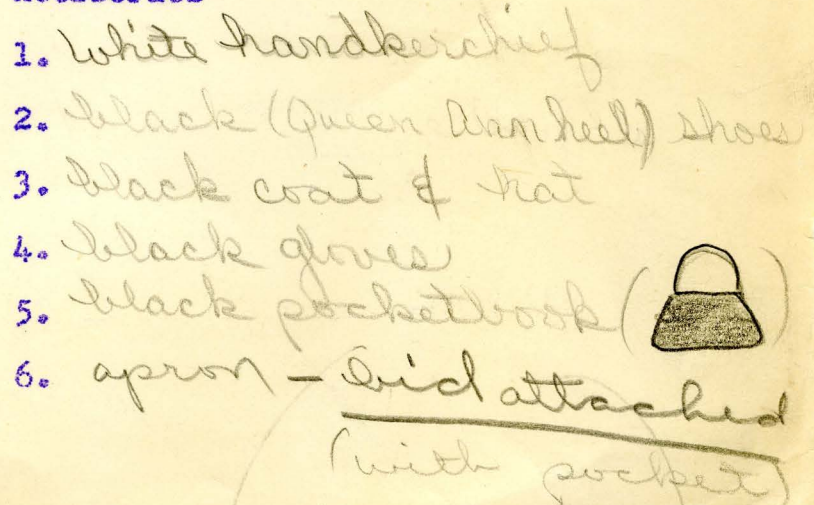 1. White handkerchief
2. black (Queen Ann heel) shoes
3. black coat & hat
4. black gloves
5. black pocketbook ( )
6. apron - bid attached
(with pocket)